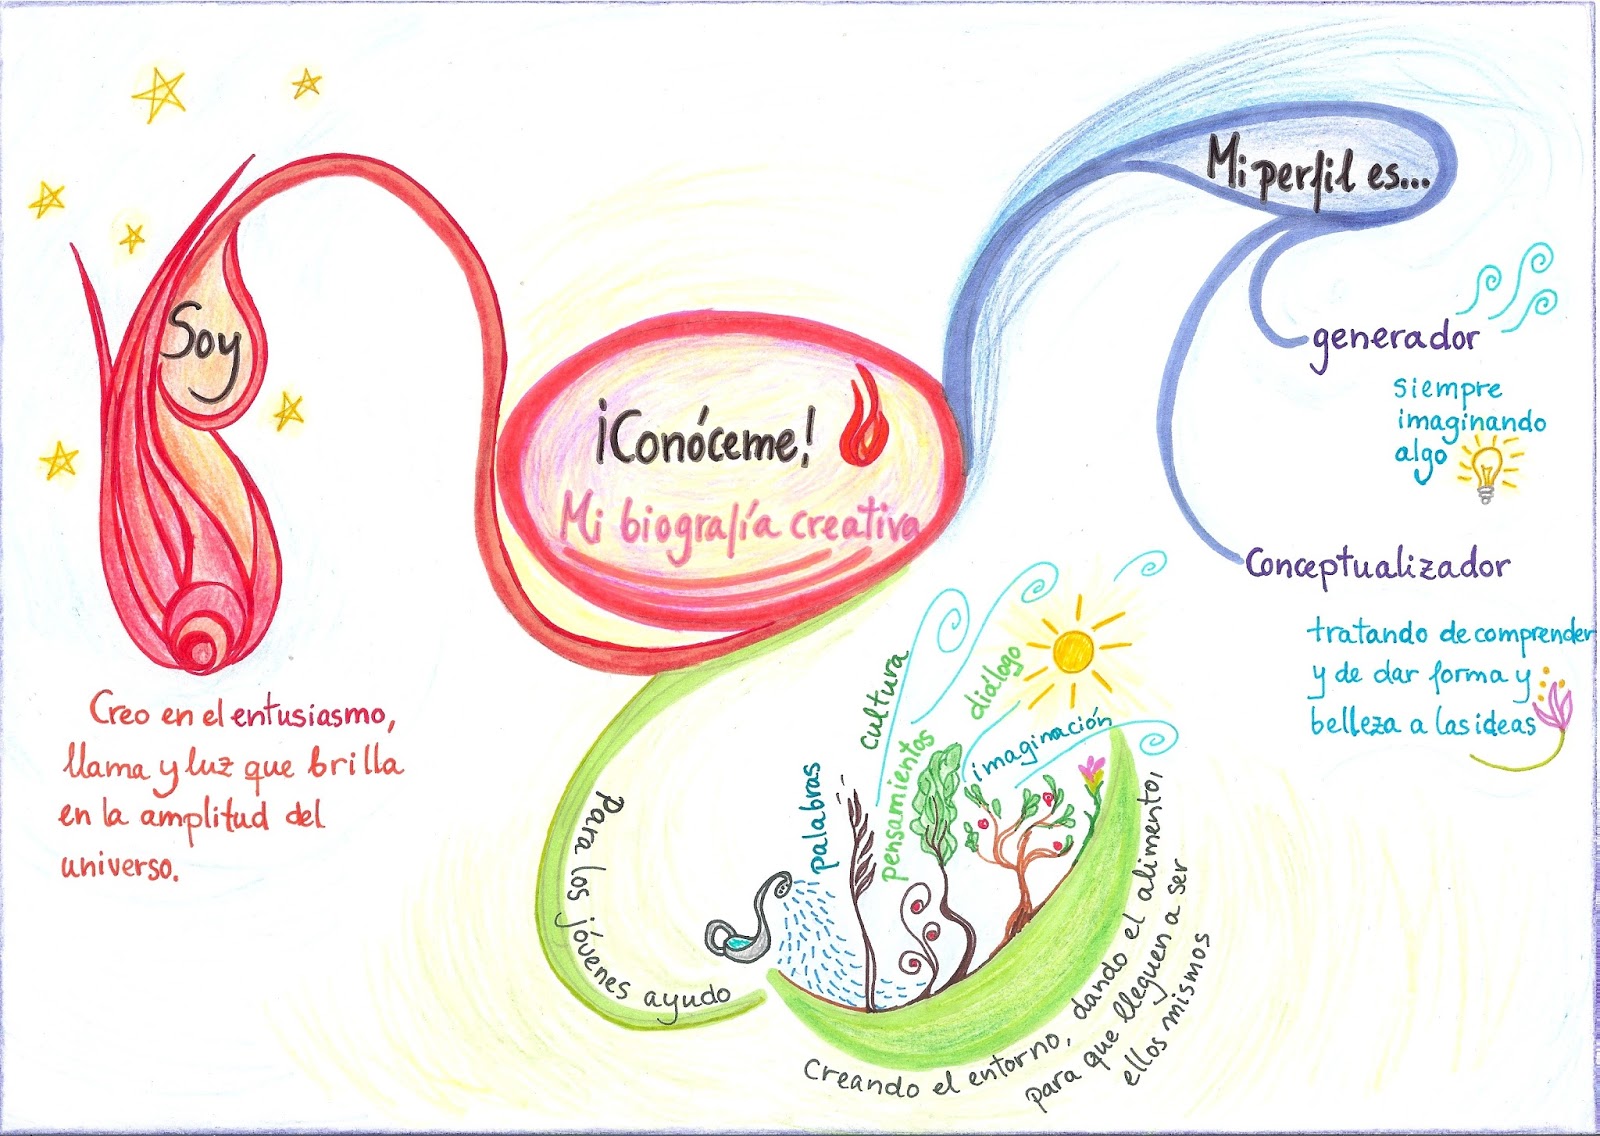 ¡Conóceme!
Mi biografía creativa
Soy
Creo en el entusiasmo,
llama y luz que brilla
en la amplitud del
universo.
Mi perfil es...
generador
siempre
imaginando
algo
conceptualizador
tratando de comprender
y de dar forma y
belleza a las ideas
Para los jóvenes ayudo
palabras
cultura
pensamientos
diálogo
imaginación
Creando el entorno, dando el alimento,
para que lleguen a ser
ellos mismos